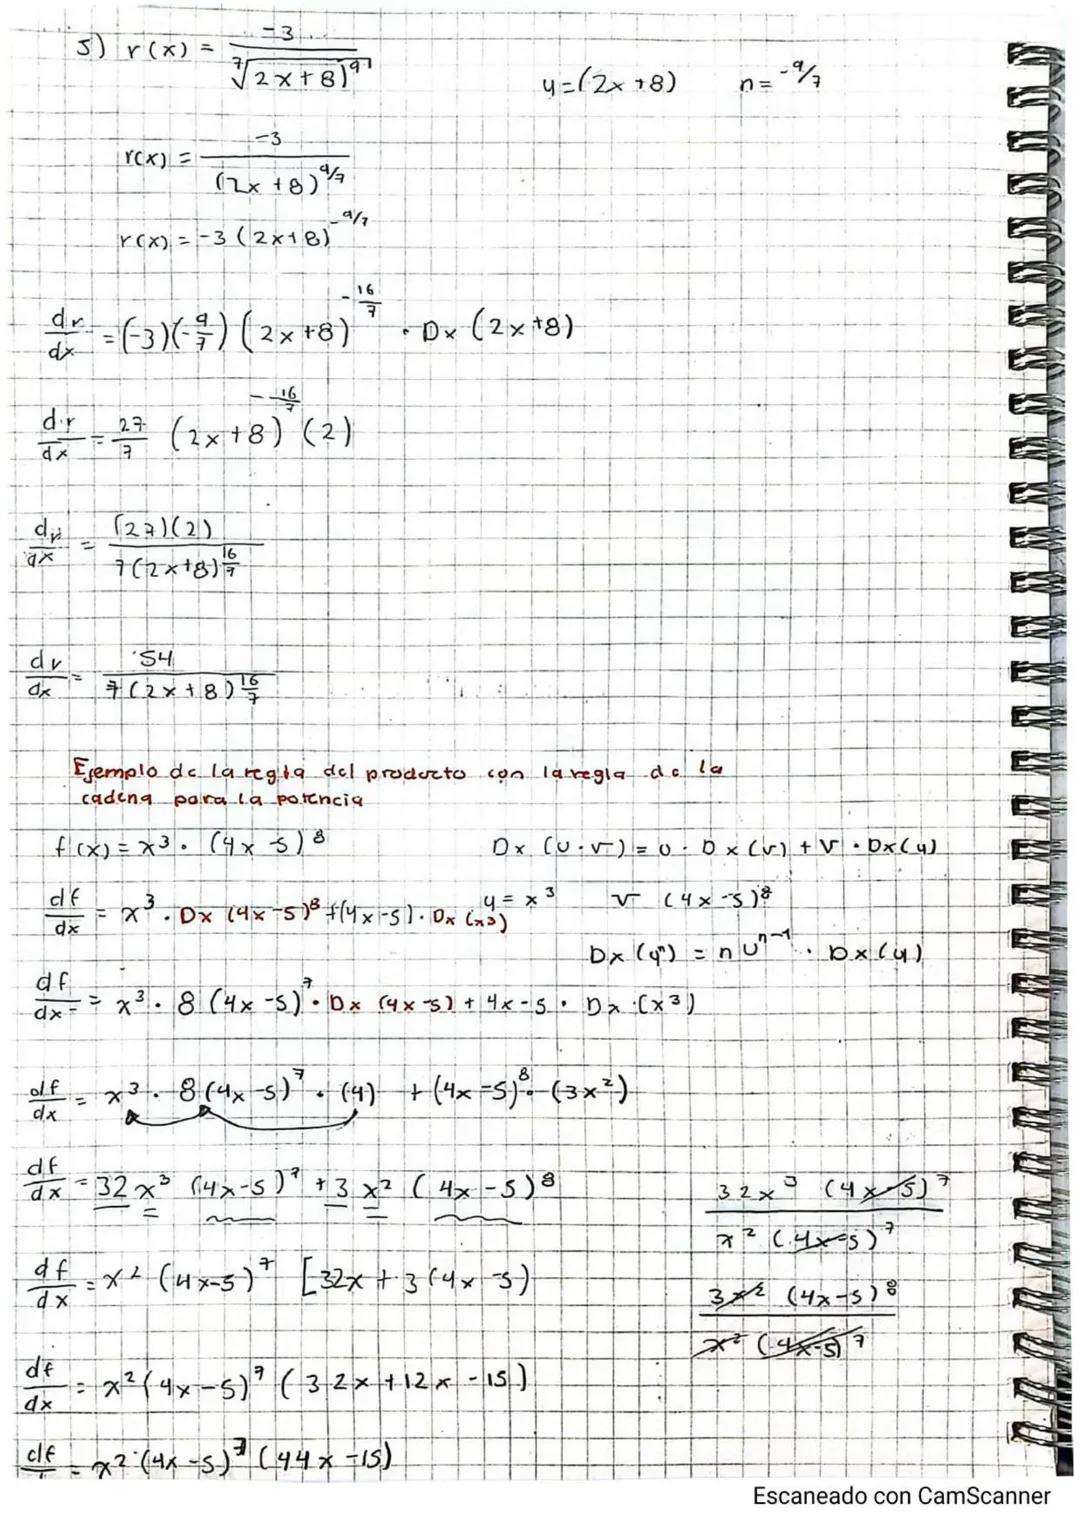 5) r(x) = -3 / ⁷√(2x+8)⁹
u=(2x+8) n=-9/7
r(x) = -3 / (2x+8)^9/7
r(x) = -3 (2x+8)^-9/7
dr/dx = (-3)(-9/7) (2x+8)^-16/7 · Dx (2x+8)
dr/dx = 27/7 (2x+8)^-16/7 (2)
dr/dx = (27)(2) / 7(2x+8)^16/7
dr/dx = 54 / 7(2x+8)^16/7
Ejemplo de la regla del producto con la regla de la
cadena para la potencia
f(x) = x³ · (4x-5)⁸
Dx (u·v) = u · Dx(v) + v · Dx(u)
df/dx = x³ · Dx (4x-5)⁸ + (4x-5) · Dx (x³)
u = x³ v (4x-5)⁸
Dx (uⁿ) = n uⁿ⁻¹ · Dx(u)
df/dx = x³ · 8 (4x-5)⁷ · Dx (4x-5) + 4x-5 · Dx (x³)
df/dx = x³ · 8(4x-5)⁷ · (4) + (4x-5)⁸ · (3x²)
df/dx = 32x³ (4x-5)⁷ + 3x² (4x-5)⁸
32x³ (4x-5)⁷ / x² (4x-5)⁷
df/dx = x² (4x-5)⁷ [32x + 3(4x-5)
3x² (4x-5)⁸ / x² (4x-5)⁷
df/dx = x² (4x-5)⁷ (32x+12x-15)
df = x² (4x-5)⁷ (44x-15)
Escaneado con CamScanner